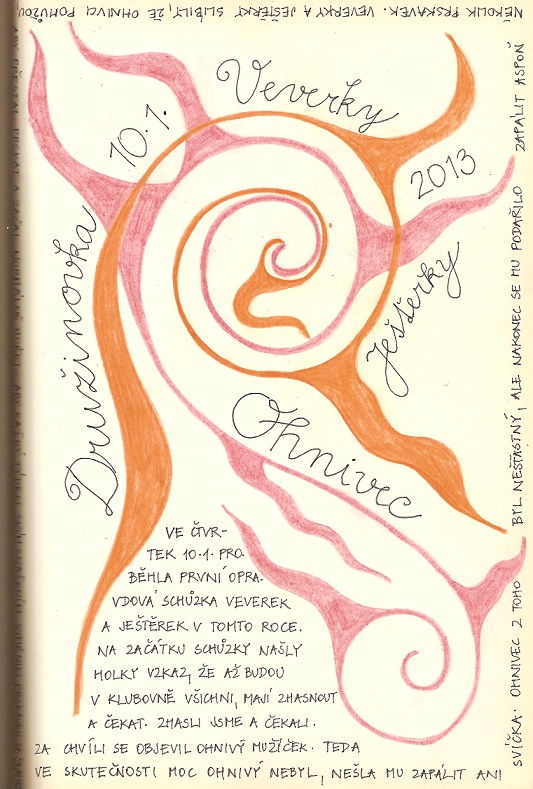 Družinovka
10.1.
Veverky
2013
Ještěrky
Ohnivec
VE ČTVR-
TEK 10.1. PRO-
BĚHLA PRVNÍ OPRA-
VDOVÁ SCHŮZKA VEVEREK
A JEŠTĚREK V TOMTO ROCE.
NA ZAČÁTKU SCHŮZKY NAŠLY
HOLKY VZKAZ, ŽE AŽ BUDOU
V KLUBOVNĚ VŠICHNI, MAJÍ ZHASNOUT
A ČEKAT. ZHASLI JSME A ČEKALI.
ZA CHVÍLI SE OBJEVIL OHNIVÝ MUŽÍČEK. TEDA
VE SKUTEČNOSTI MOC OHNIVÝ NEBYL, NEŠLA MU ZAPÁLIT ANI
SVÍČKA. OHNIVEC Z TOHO BYL NEŠŤASTNÝ, ALE NAKONEC SE MU PODAŘILO ZAPÁLIT ASPOŇ
NĚKOLIK PRSKAVEK. VEVERKY A JEŠTĚRKY SLÍBILY, ŽE OHNIVCI POMŮŽOU,